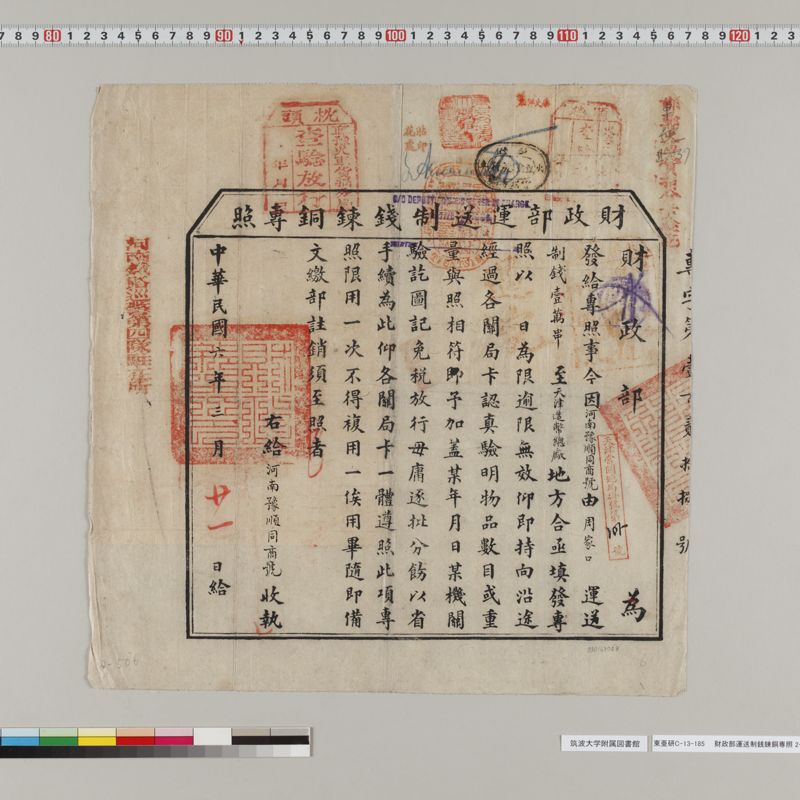 財政部運送制錢鍊銅專照
財政部 為
發給專照事今因河南豫順同商號由周家口 運送
制錢壹萬串 至天津造幣總廠地方合亟填發專
照以 日為限逾限無效仰即持向沿途
經過各關局卡認真驗明物品數目或重
量與照相符即予加蓋某年月日某機關
驗訖圖記免稅放行毋庸逐批分飭以省
手續為此仰各關局卡一體遵照此項專
照限用一次不得複用一俟用畢隨即備
文繳部註銷須至照者
右給河南豫順同商號 收執
中華民國六年三月廿一日給
查驗放行
筑波大学附属図書館
東亜研C-13-185 財政部運送制銭錬銅専照 2-